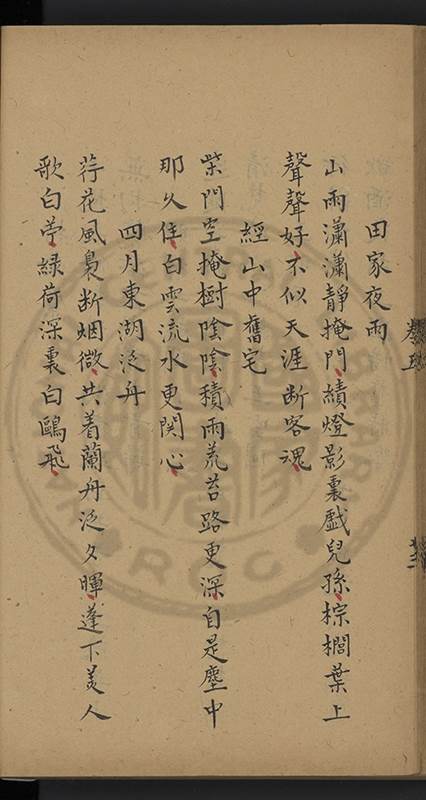 田家夜雨
山雨瀟瀟靜掩門績燈影裏戲兒孫棕櫚葉上
聲聲好不似天涯断客魂
經山中舊宅
柴門空掩樹陰陰積雨荒苔路更深自是塵中
那久住白雲流水更関心
四月東湖泛舟
荇花風裊断烟微共着蘭舟泛夕暉蓬下美人
歌白苧緑荷深裏白鷗飛